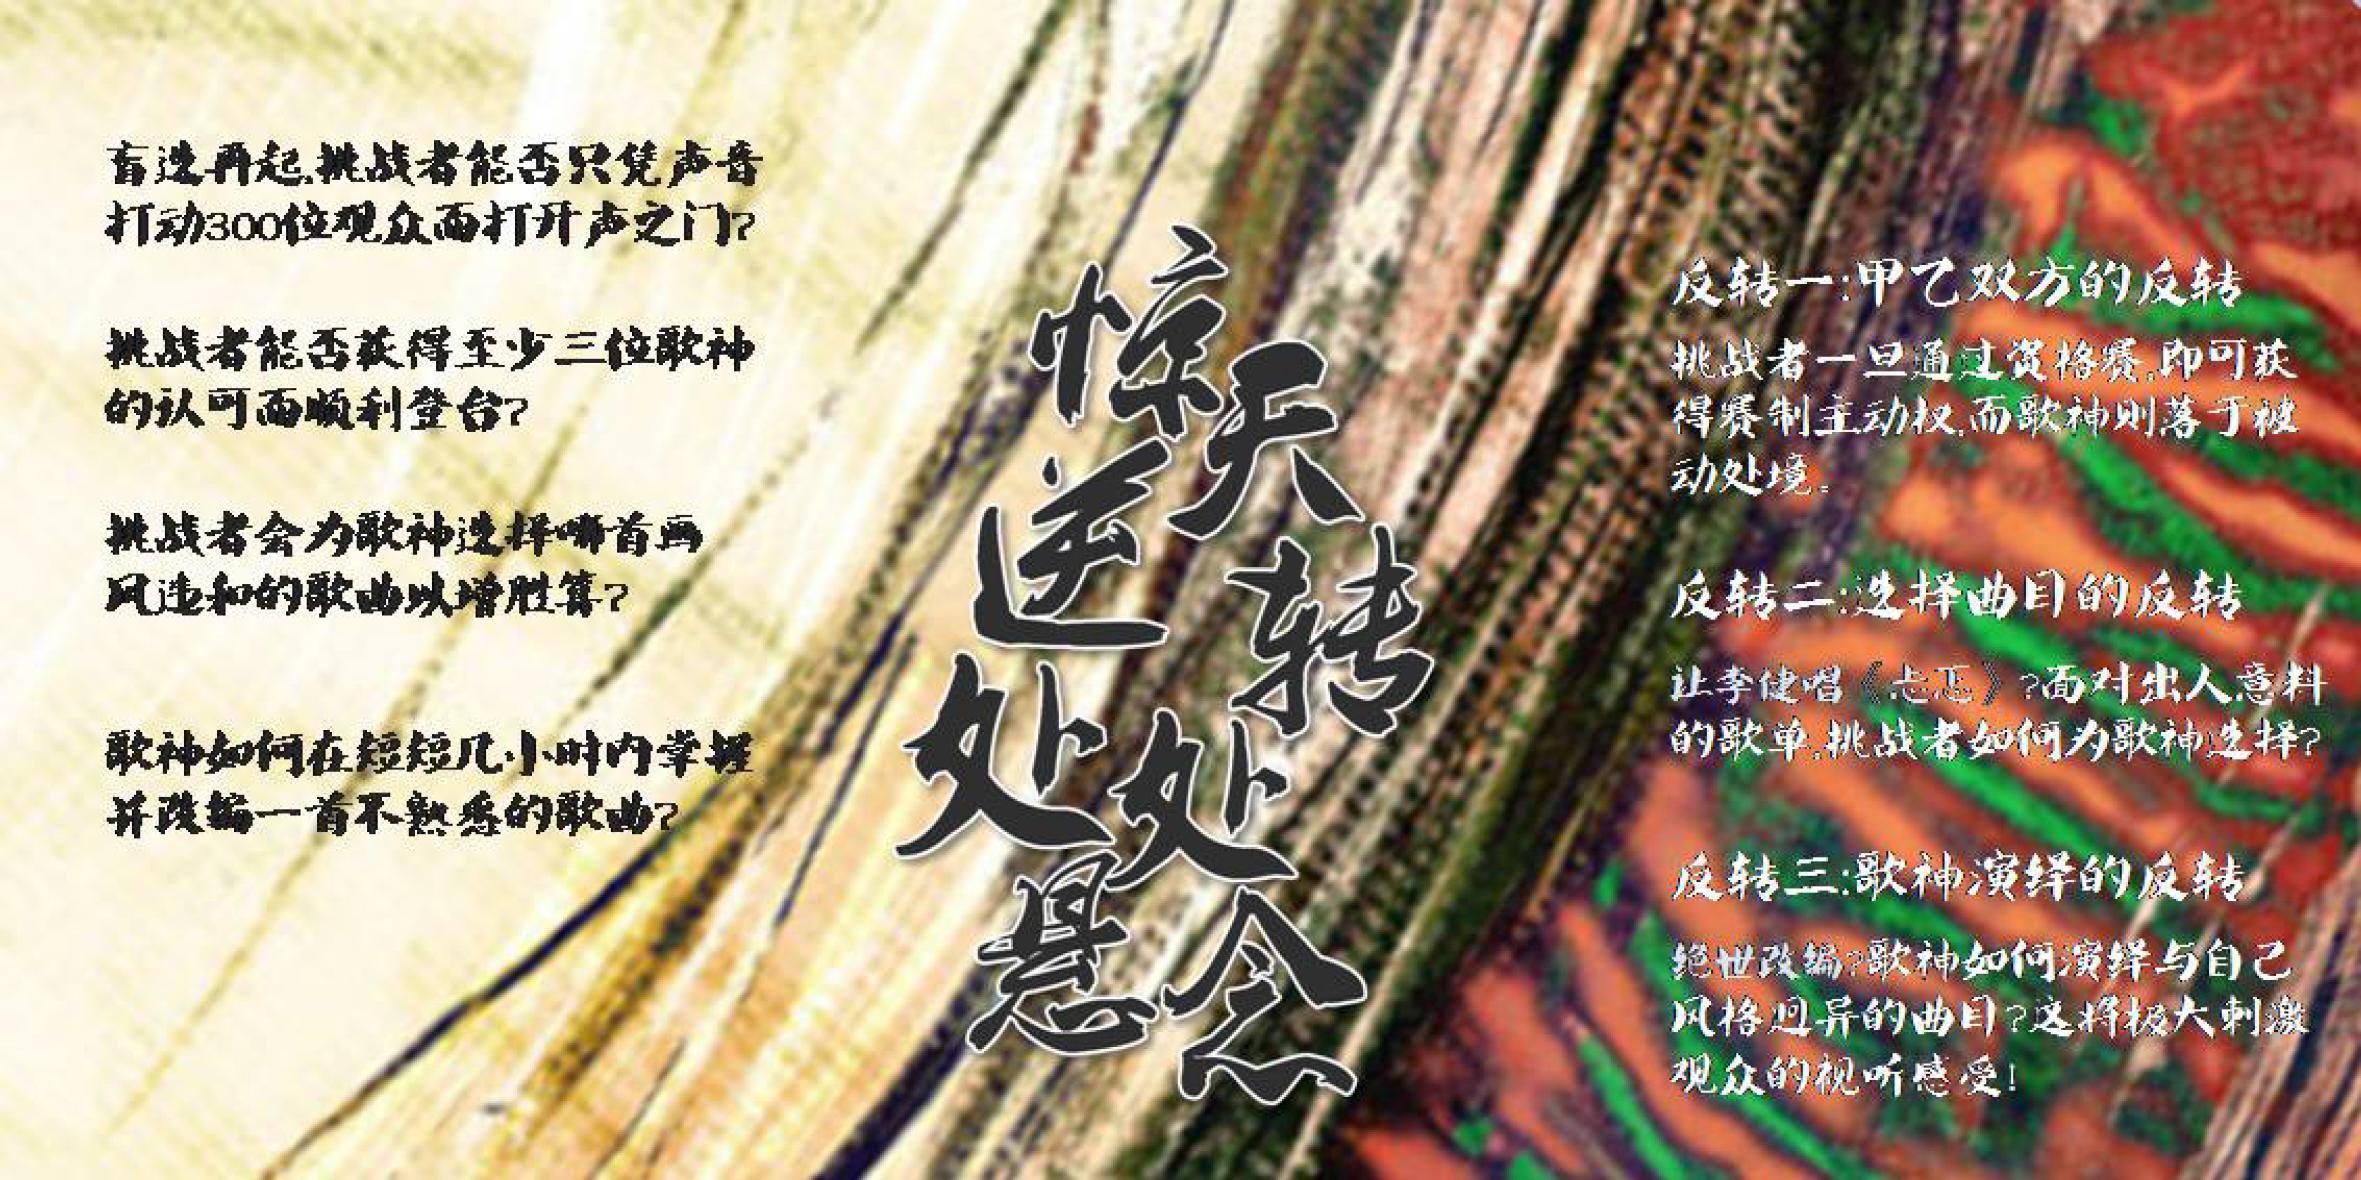 盲选再起,挑战者能否只凭声音
打动300位观众而打开声之门?
挑战者能否获得至少三位歌神
的认可而顺利登台?
挑战者会为歌神选择哪首画
风违和的歌曲以增胜算?
歌神如何在短短几小时内掌握
并改编一首不熟悉的歌曲?
惊天
逆转
处处
悬念
反转一:甲乙双方的反转
挑战者一旦通过资格赛,即可获
得赛制主动权,而歌神则落于被
动处境。
反转二:选择曲目的反转
让李健唱《忐忑》?面对出人意料
的歌单,挑战者如何为歌神选择?
反转三:歌神演绎的反转
绝世改编?歌神如何演绎与自己
风格迥异的曲目?这将极大刺激
观众的视听感受!